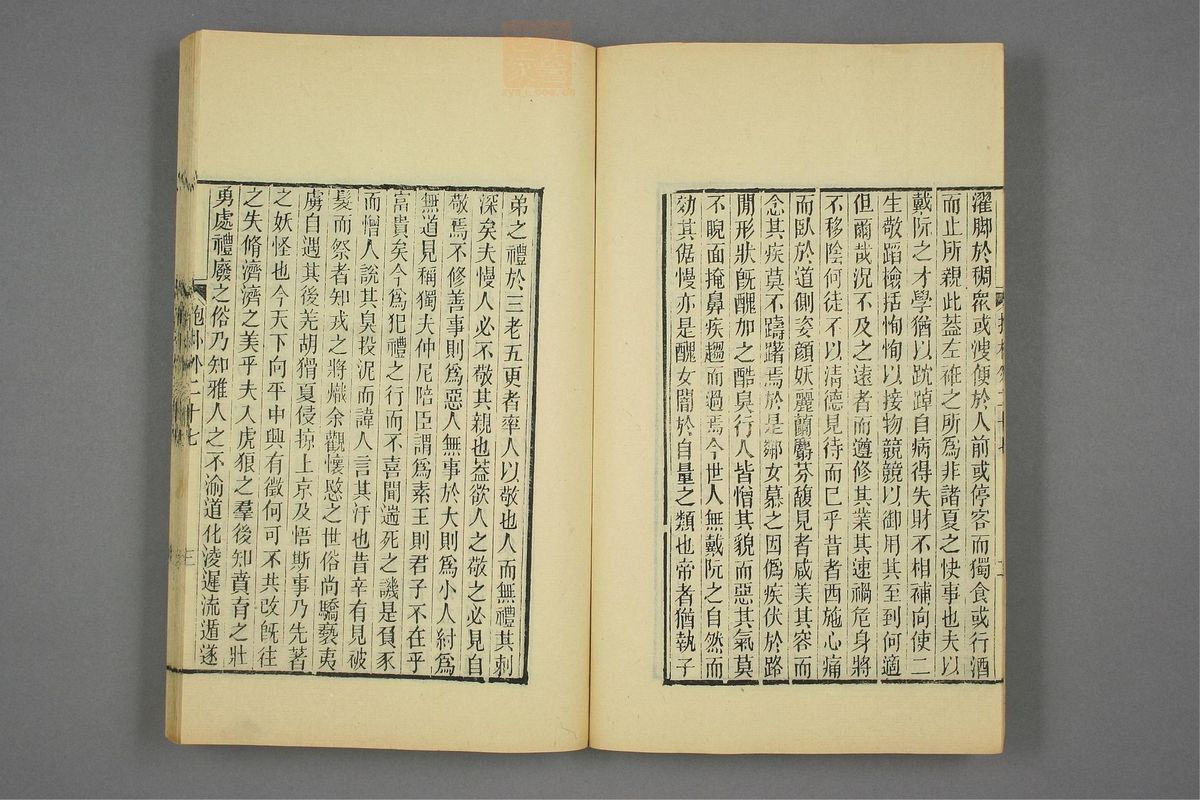 濯脚於稠衆或溲便於人前或停客而獨食或行酒
而止所親此葢左衽之所爲非諸夏之快事也夫以
戴阮之才學猶以跅踔自病得失財不相補向使二
生敬蹈檢括恂恂以接物競競以御用其至到何適
但爾哉況不及之遠者而遵修其業其速禍危身將
不移陰何徒不以淸德見待而已乎昔者西施心痛
而臥於道側姿顔妖麗蘭麝芬馥見者咸美其容而
念其疾莫不躊躇焉於是鄰女慕之因僞疾伏於路
閒形狀旣醜加之酷臭行人皆憎其貌而惡其氣莫
不睨面掩鼻疾趨而過焉今世人無戴阮之自然而
效其倨慢亦是醜女闇於自量之類也帝者猶執子
弟之禮於三老五更者率人以敬也人而無禮其刺
深矣夫慢人必不敬其親也葢欲人之敬之必見自
敬焉不修善事則爲惡人無事於大則爲小人紂爲
無道見稱獨夫仲尼陪臣謂爲素王則君子不在乎
富貴矣今爲犯禮之行而不喜聞遄死之譏是負豕
而憎人說其臭投泥而諱人言其汙也昔辛有見被
髮而祭者知戎之將熾余觀懷愍之世俗尚驕褻夷
虜自遇其後羌胡猾夏侵掠上京及悟斯事乃先著
之妖怪也今天下向平中興有徵何可不共改旣往
之失脩濟濟之美乎夫入虎狼之羣後知賁育之壯
勇處禮廢之俗乃知雅人之不渝道化淩遲流遁遂
抱朴外二十七
三